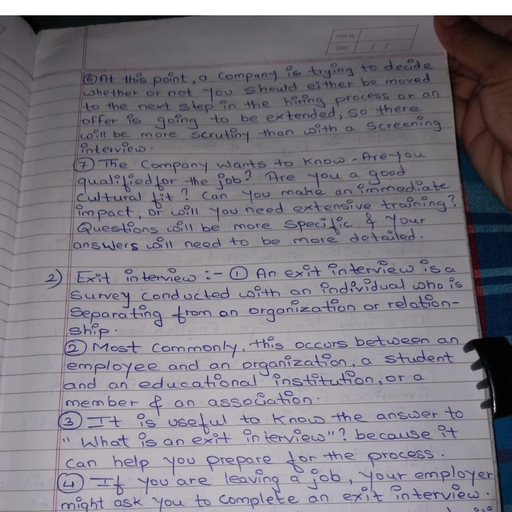 ⑥ At this point, a company is trying to decide
whether or not you should either be moved
to the next step in the hiring process or an
offer is going to be extended, so there
will be more scrutiny than with a screening
interview.
⑦ The company wants to know - Are you
qualified for the job? Are you a good
cultural fit? Can you make an immediate
impact, or will you need extensive training?
Questions will be more specific & your
answers will need to be more detailed.
2) Exit interview :- ① An exit interview is a
survey conducted with an individual who is
separating from an organization or relation-
ship.
② Most commonly, this occurs between an
employee and an organization, a student
and an educational institution, or a
member of an association.
③ It is useful to know the answer to
" What is an exit interview"? because it
can help you prepare for the process.
④ If you are leaving a job, your employer
might ask you to complete an exit interview.